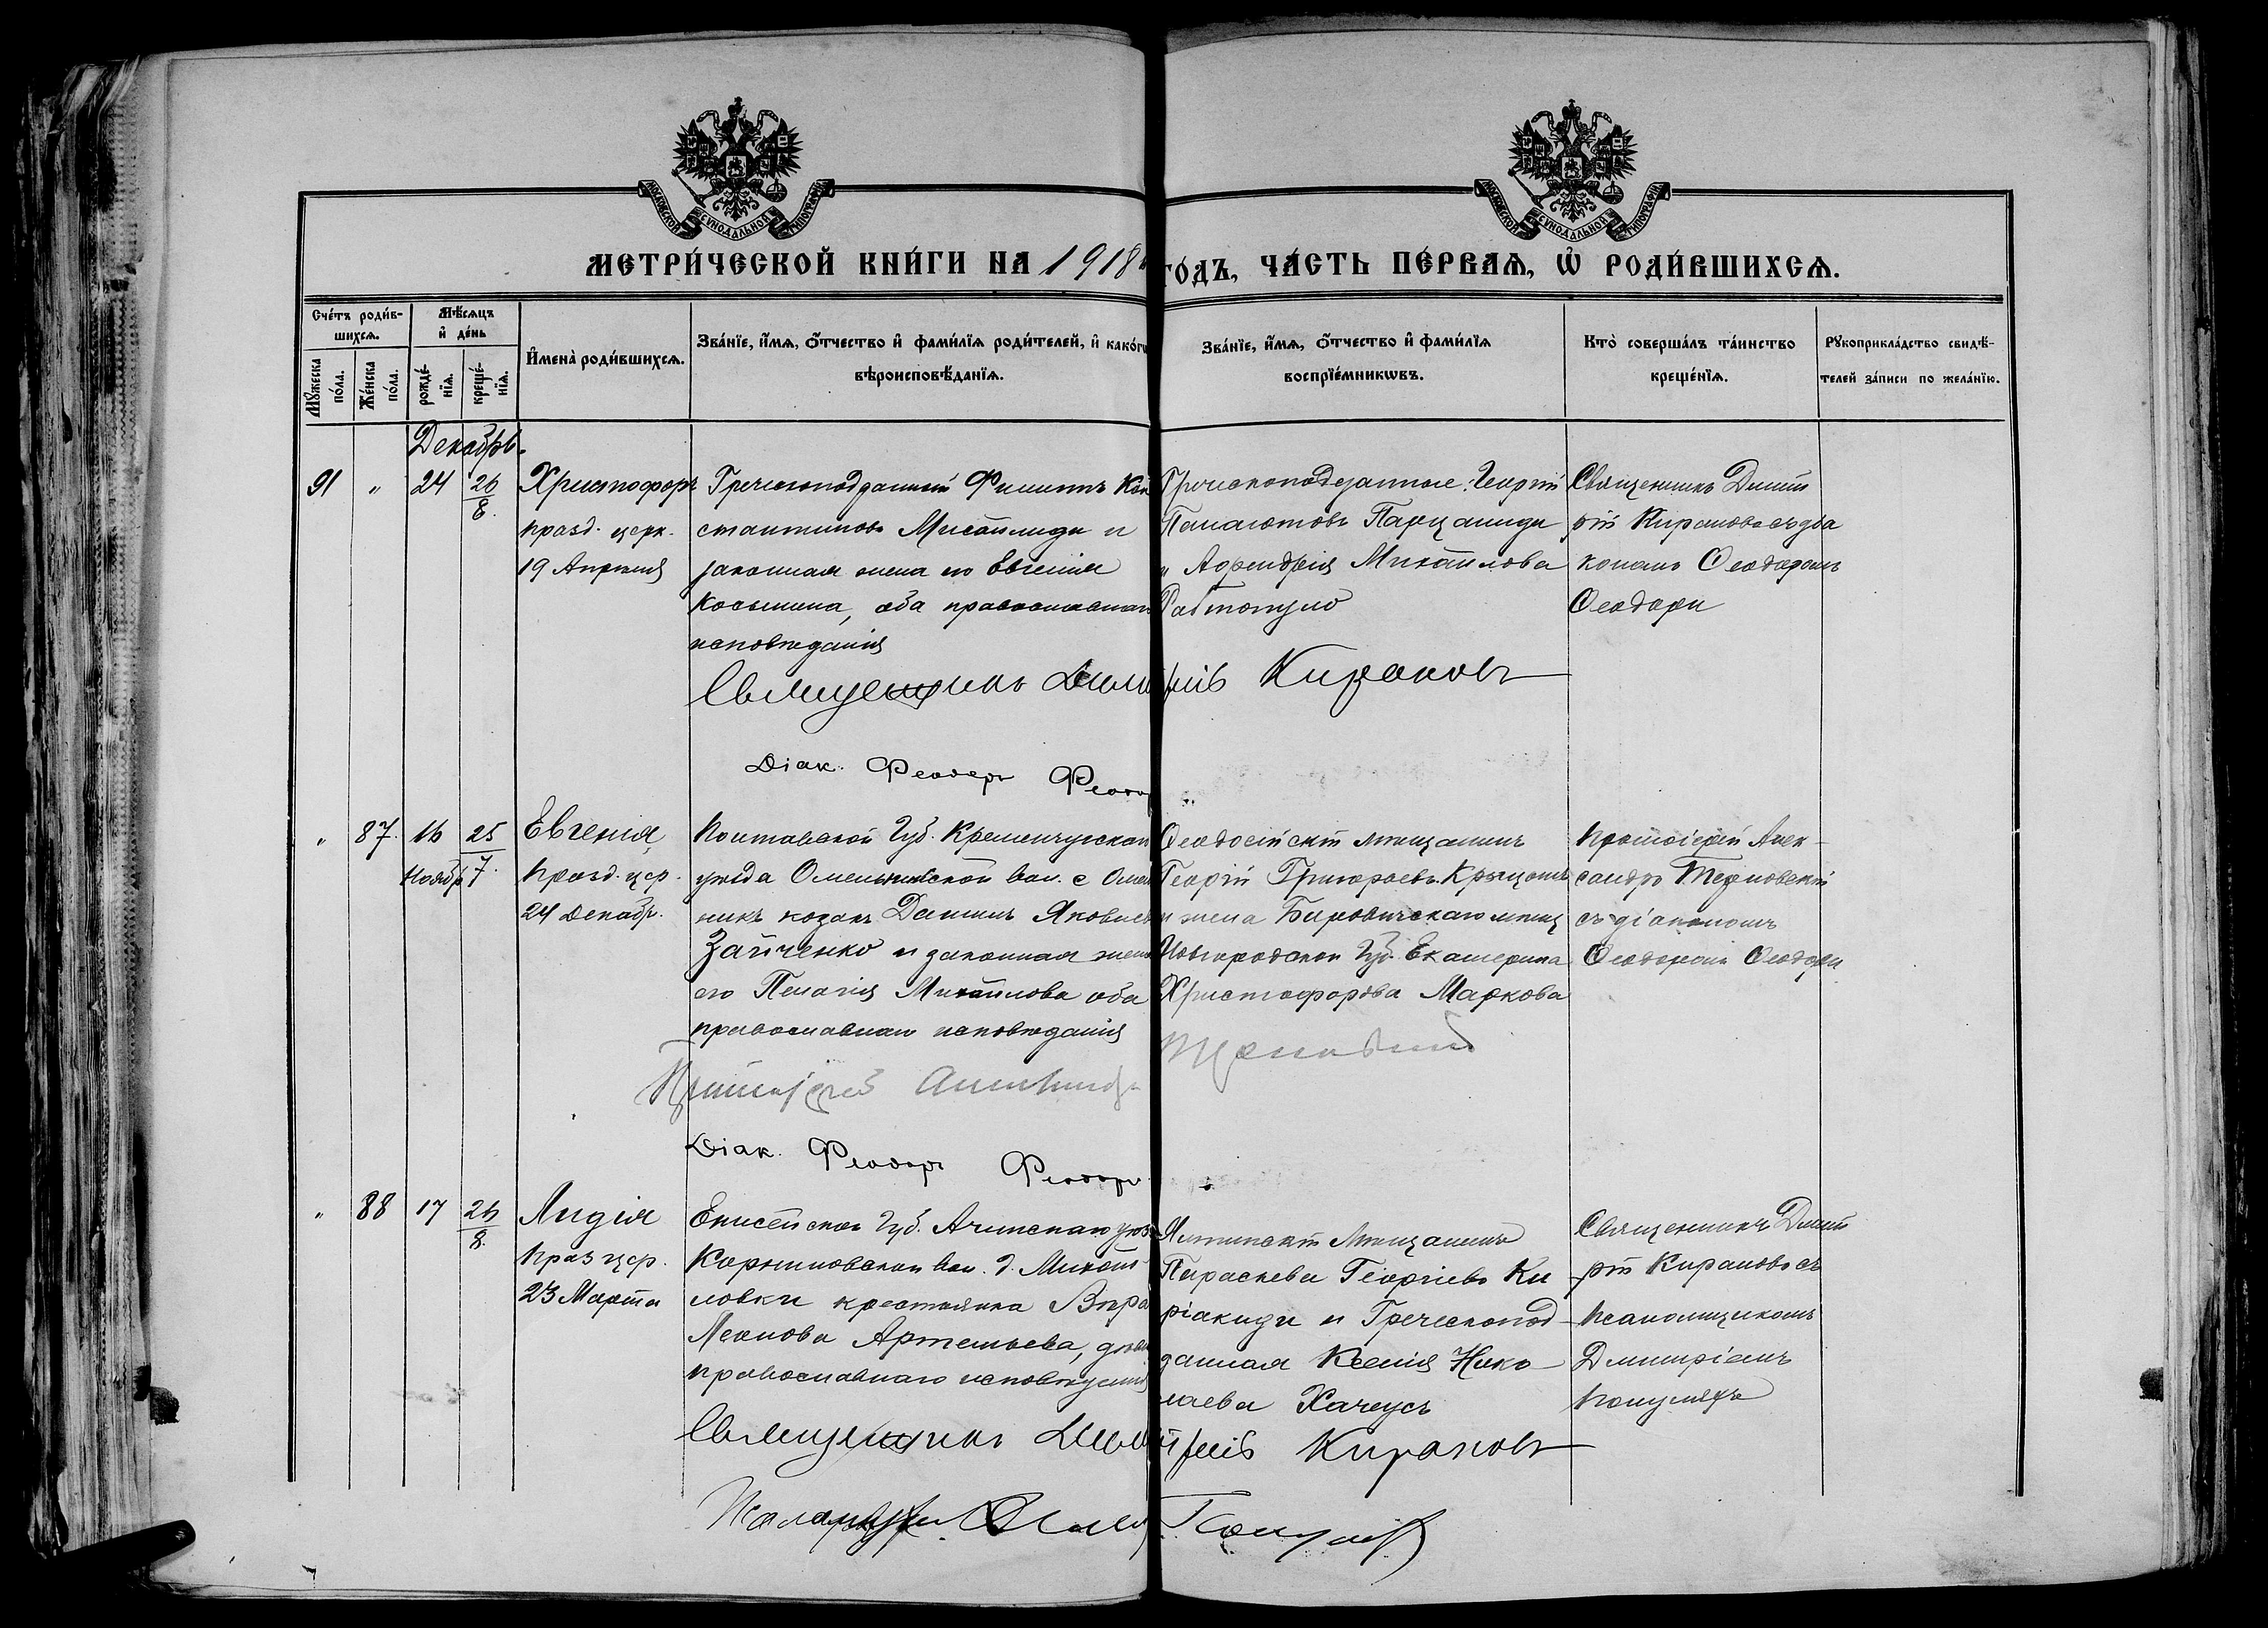 МОСКОВСКОЙ СѴНОДАЛЬНОЙ ТИПОГРАФІИ
МОСКОВСКОЙ СѴНОДАЛЬНОЙ ТИПОГРАФІИ
МЕТРИ́ЧЕСКОЙ КНИ́ГИ НА 1918
ГО́ДЪ, ЧА́СТЬ ПЕ́РВАѦ, Ѡ҆ РОДИ́ВШИХСѦ.
Сче́тъ роди́в-
шихсѧ.
Мꙋ́жеска по́ла.
Же́нска по́ла.
Мѣ́сѧцъ
и҆ де́нь
рожде́-нїѧ.
креще́-нїѧ.
И҆мена̀ роди́вшихсѧ.
Зва́нїе, и҆́мѧ, ѻ҆́тчество и҆ фами́лїѧ роди́телей, и҆ како́гѡ
вѣроисповѣ́данїѧ.
Зва́нїе, и҆́мѧ, ѻ҆́тчество и҆ фами́лїѧ
воспрїе́мникѡвъ.
Кто̀ соверша́лъ та́инство
креще́нїѧ.
Рꙋкоприкла́дство свидѣ́-
телей за́писи по жела́нїю.
Декабрь.
91 " 24 26/8.
Христофоръ
празд. церк.
19 Апрѣля
Греческоподданный Филиппъ Кон
стантиновъ Мисаилиди и
законная жена его Евгенія
Косьмина, оба православнаго
исповѣданія
Греческоподданные: Георгій
Панаіотовъ
и Михаилова
Священникъ Димит
рій Кирановъ съ діа
кономъ Ѳеодоромъ
Ѳеодори
Священникъ Димитрій Кирановъ
Діак. Ѳеодоръ Ѳеодо
" 87. 16 25/7.
Ноябр
Евгенія
празд. цер.
24 Декабр.
Полтавской Губ. Кременчугскаго
уѣзда Омельникской вол. с Омель
никъ козакъ Даніилъ Яковлевъ
Зайченко и законная жена
его Пелагія Михаилова оба
православнаго исповѣданія
Ѳеодосійскій мѣщанинъ
Георгій Григорьевъ
и жена Боровичскаго мѣщ
Новгородской Губ. Екатерина
Христофорова Маркова
Протоіерей Алек-
сандръ Терновскій
съ діакономъ
Ѳеодоромъ Ѳеодори
Протоіерей Александръ
Терновскій
Діак. Ѳеодоръ Ѳеодори
" 88 17 26/8.
Лидія
праз цер.
23 Марта
Енисейской Губ. Ачинскаго уѣз
вол. д. Михай
ловки крестьянка Вѣра
Леонова Артемьева, дѣвица
православнаго исповѣданія
Ялтинскій Мѣщанинъ
Параскева Георгіевъ Ки
ріакиди и Греческопод-
данная Ксенія Нико-
лаева
Священникъ Димит
рій Кирановъ съ
псаломщикомъ
Димитріемъ
Священникъ Димитрій Кирановъ